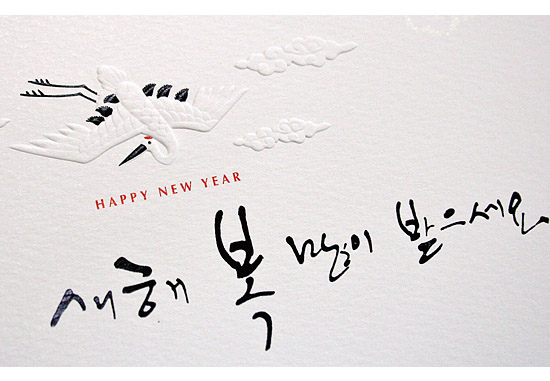 HAPPY NEW YEAR
새해 복 많이 받으세요